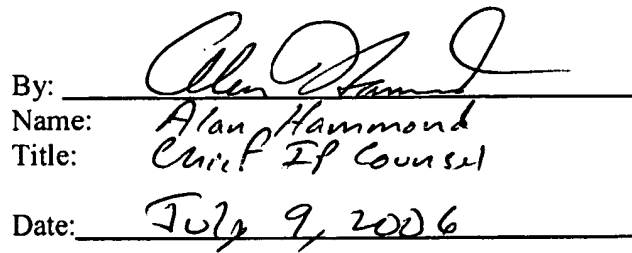 By: Alan Hammond
Name: Alan Hammond
Title: Chief IP Counsel
Date: July 9, 2006